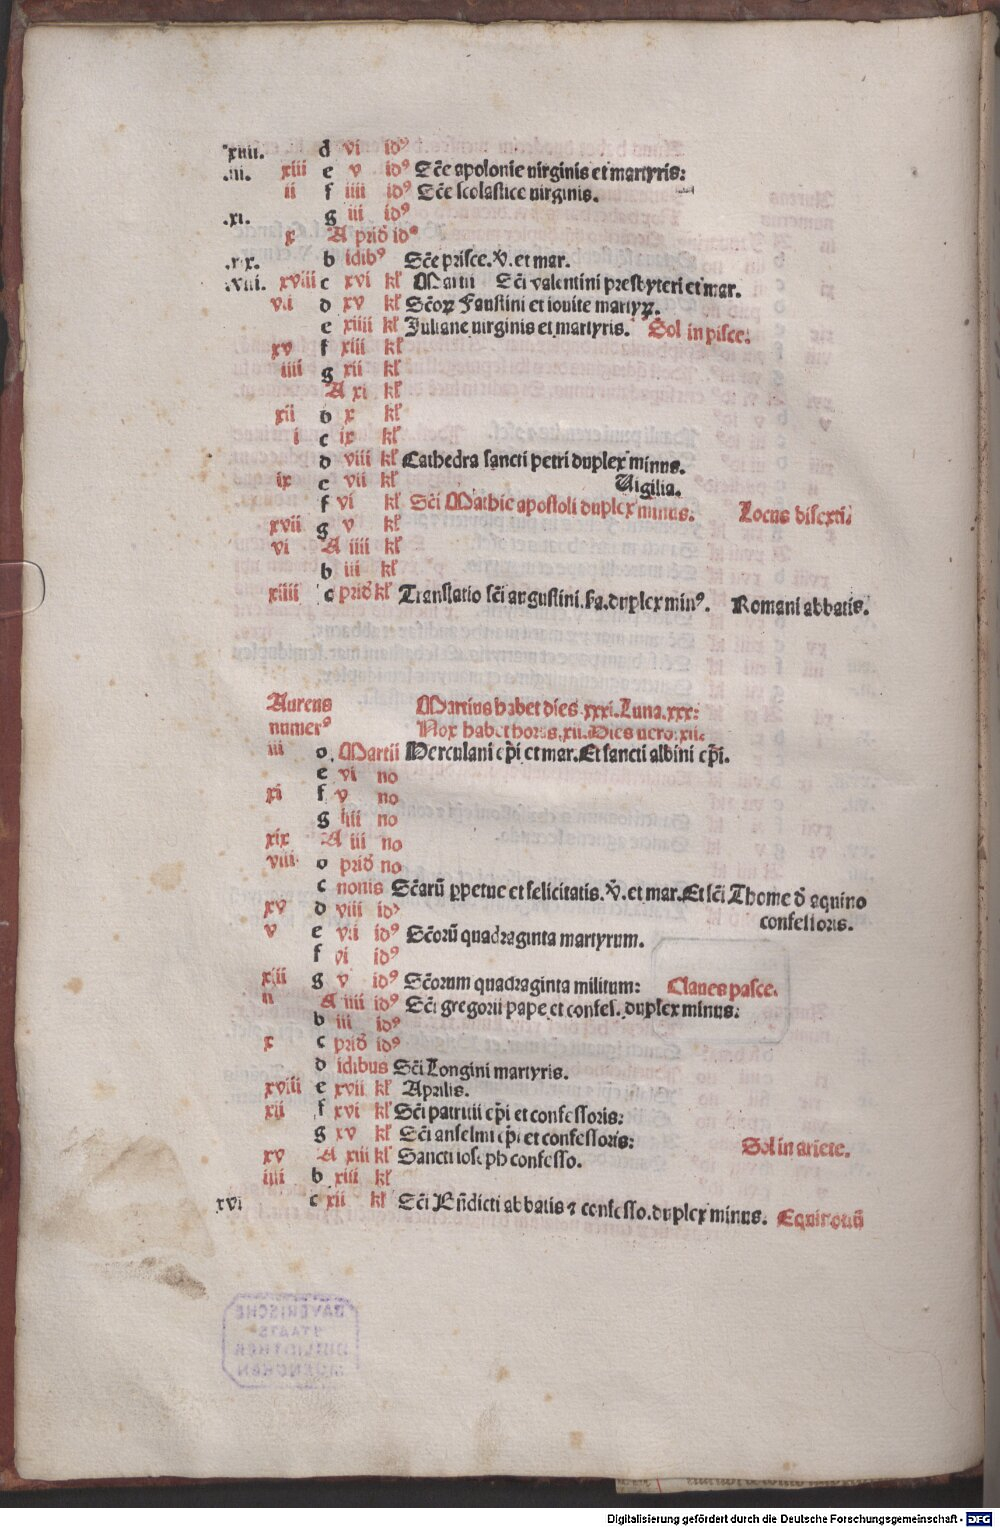 .xiiii. d vi idꝰ
.iii. xiii e v idꝰ Scē apolonie uirginis et martyris:
ii f iiii idꝰ Scē scolastice uirginis.
.xi. g iii idꝰ
x A prid̄ idꝰ
.xix. b idibꝰ Scē prisce. v̄. et mar.
.viii. xviii c xvi kl̄ Martii Sc̄i valentini presbyteri et mar.
vii d xv kl̄ Sc̄oꝝ Faustini et iouite martyꝝ.
e xiiii kl̄ Juliane uirginis et martyris. Sol in pisce:
xv f xiii kl̄
iiii g xii kl̄
A xi kl̄
xii b x kl̄
i c ix kl̄
d viii kl̄ Cathedra sancti petri duplex minus.
ix e vii kl̄ Vigilia.
f vi kl̄ Sc̄i Mathie apostoli duplex minus. Locus bisexti:
xvii g v kl̄
vi A iiii kl̄
b iii kl̄
xiiii c prid̄ kl̄ Translatio sc̄i augustini. Fa. duplex minꝰ. Romani abbatis.
Aureus Martius habet dies .xxxi. Luna .xxx:
numerꝰ Nox habet horas .xii. Dies uero .xii:
iii d Martii Herculani ep̄i et mar. Et sancti albini ep̄i.
e vi no
xi f v no
g iiii no
xix A iii no
viii b prid̄ no
c nonis Sc̄arū ꝑpetue et felicitatis. v̄. et mar. Et sc̄i Thome d̄ aquino
xv d viii idꝰ confessoris.
v e vii idꝰ Sc̄orū quadraginta martyrum.
f vi idꝰ
xiii g v idꝰ Sc̄orum quadraginta militum: Claues pasce.
ii A iiii idꝰ Sc̄i gregorii pape et confes. duplex minus:
b iii idꝰ
x c prid̄ idꝰ
d idibus Sc̄i Longini martyris.
xviii e xvii kl̄ Aprilis.
xii f xvi kl̄ Sc̄i patritii ep̄i et confessoris:
g xv kl̄ Sc̄i anselmi ep̄i et confessoris: Sol in ariete.
xv A xiiii kl̄ Sancti ioseph confesso.
iiii b xiii kl̄
xvi c xii kl̄ Sc̄i Bn̄dicti abbatis ⁊ confesso. duplex minus. Equinotiū
BAYERISCHE
STAATS-
BIBLIOTHEK
MUENCHEN
Digitalisierung gefördert durch die Deutsche Forschungsgemeinschaft - DFG